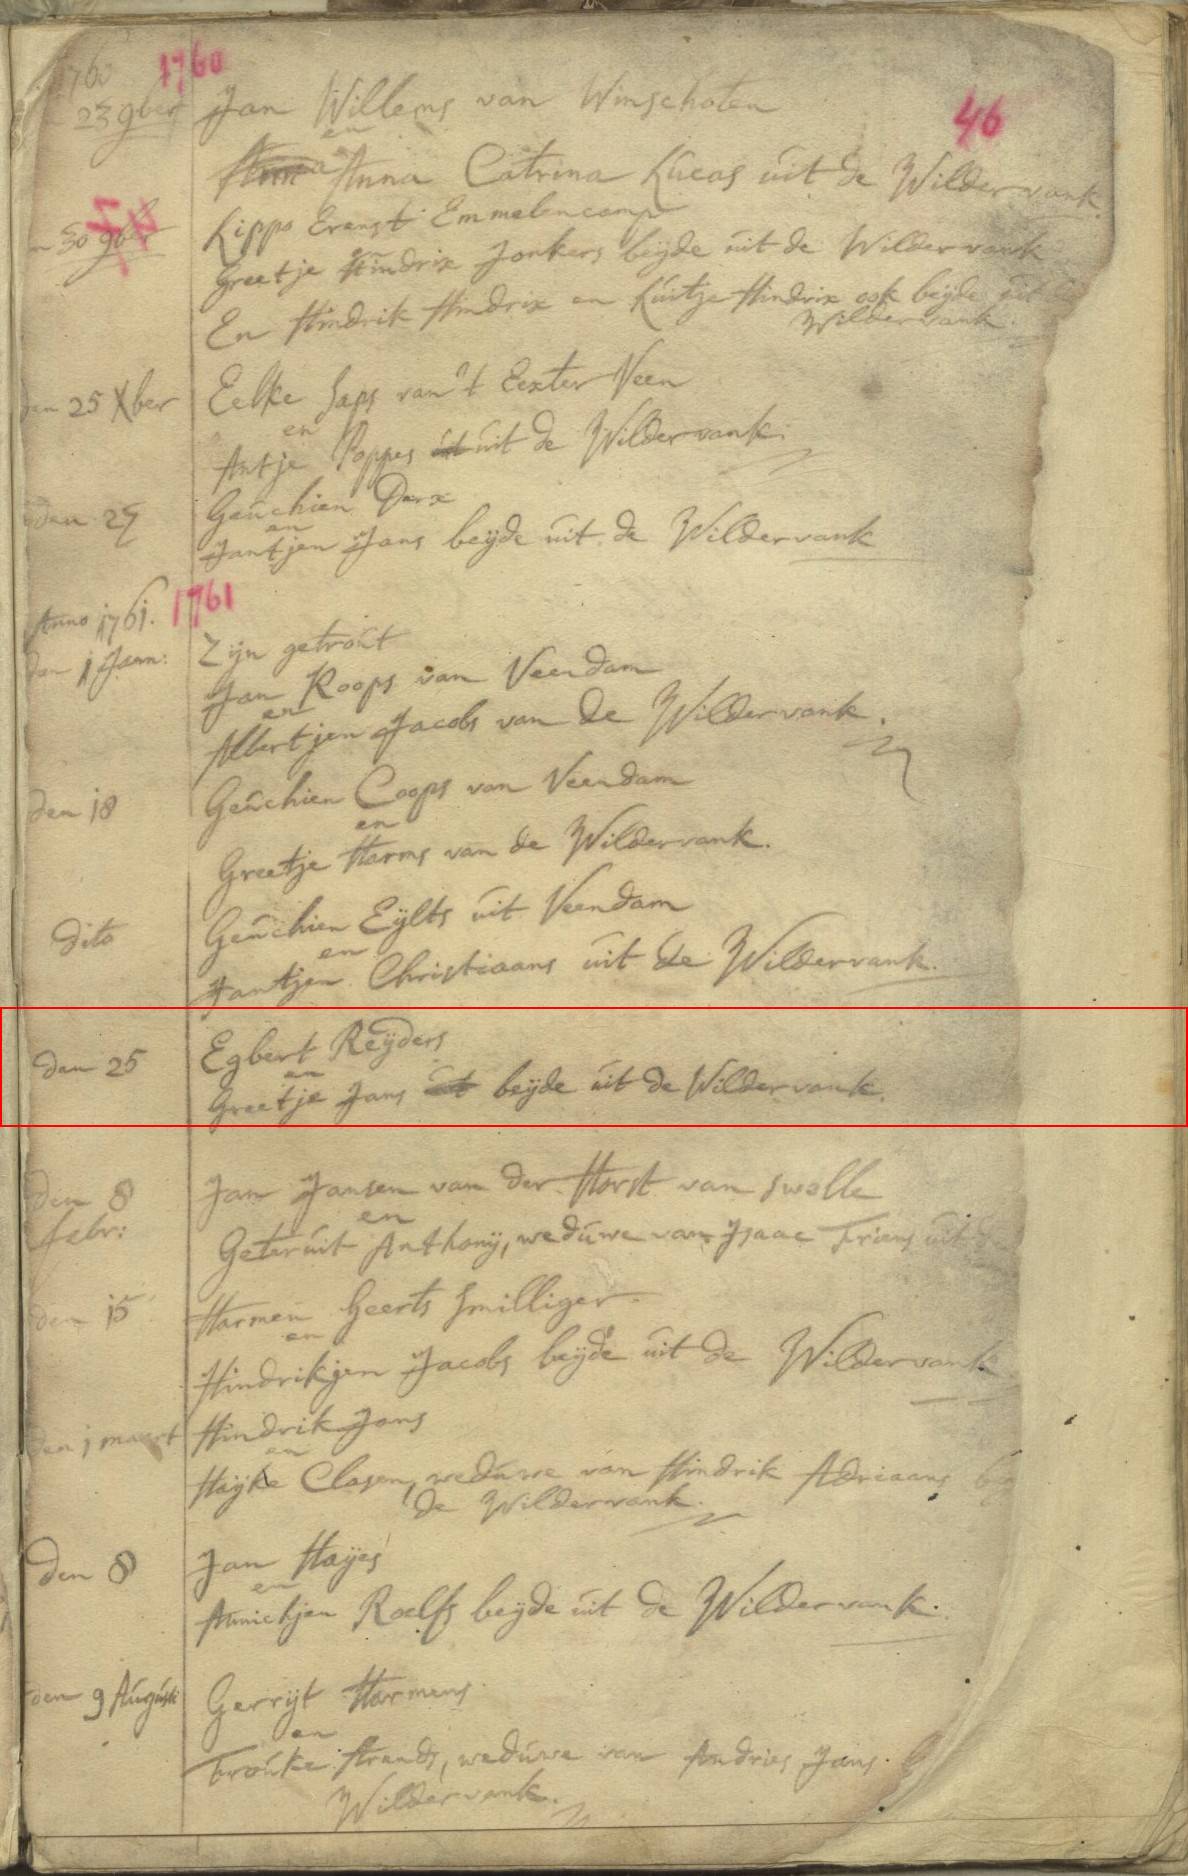 1760 1760
23 9ber Jan Willems van Winschoten
en
Anna Anna Catrina Lucas uit de Wildervank
30 9ber Lippo Erenst Emmelencamp
Greetje Hindrix Jonkers beyde uit de Wildervank
En Hindrik Hindrix en Luitje Hindrix ook beyde uit de
Wildervank.
46
den 25 Xber Eelke Japs van 't Eexter Veen
en
Antje Poppes uit de Wildervank.
den 27 Geuchien Derx
en
Jantjen Jans beyde uit de Wildervank
Anno 1761. 1761
den 1 Jann: Zijn getrout
Jan Roops van Veendam
en
Albertjen Jacobs van de Wildervank.
den 18 Geuchien Coops van Veendam
en
Greetje Harms van de Wildervank.
dito Geuchien Eijlts uit Veendam
en
Jantjen Christiaans uit de Wildervank.
den 25 Egbert Reijders
en
Greetje Jans beyde uit de Wildervank.
den 8 Jan Jansen van der Horst van Swolle
febr: en
Geteruit Anthonij, weduwe van Isaac Friens uit
den 15 Harmen Geerts Smilliger.
en
Hindrikjen Jacobs beyde uit de Wildervank
den 1 maert Hindrik Jans
en
Haijke Clasen, weduwe van Hindrik Adriaans
de Wildervank.
den 8 Jan Haijes
en
Annichjen Roelfs beyde uit de Wildervank.
den 9 Augusti Gerrijt Harmens
en
Frouke Arends, weduwe van Andries Jans.
Wildervank.